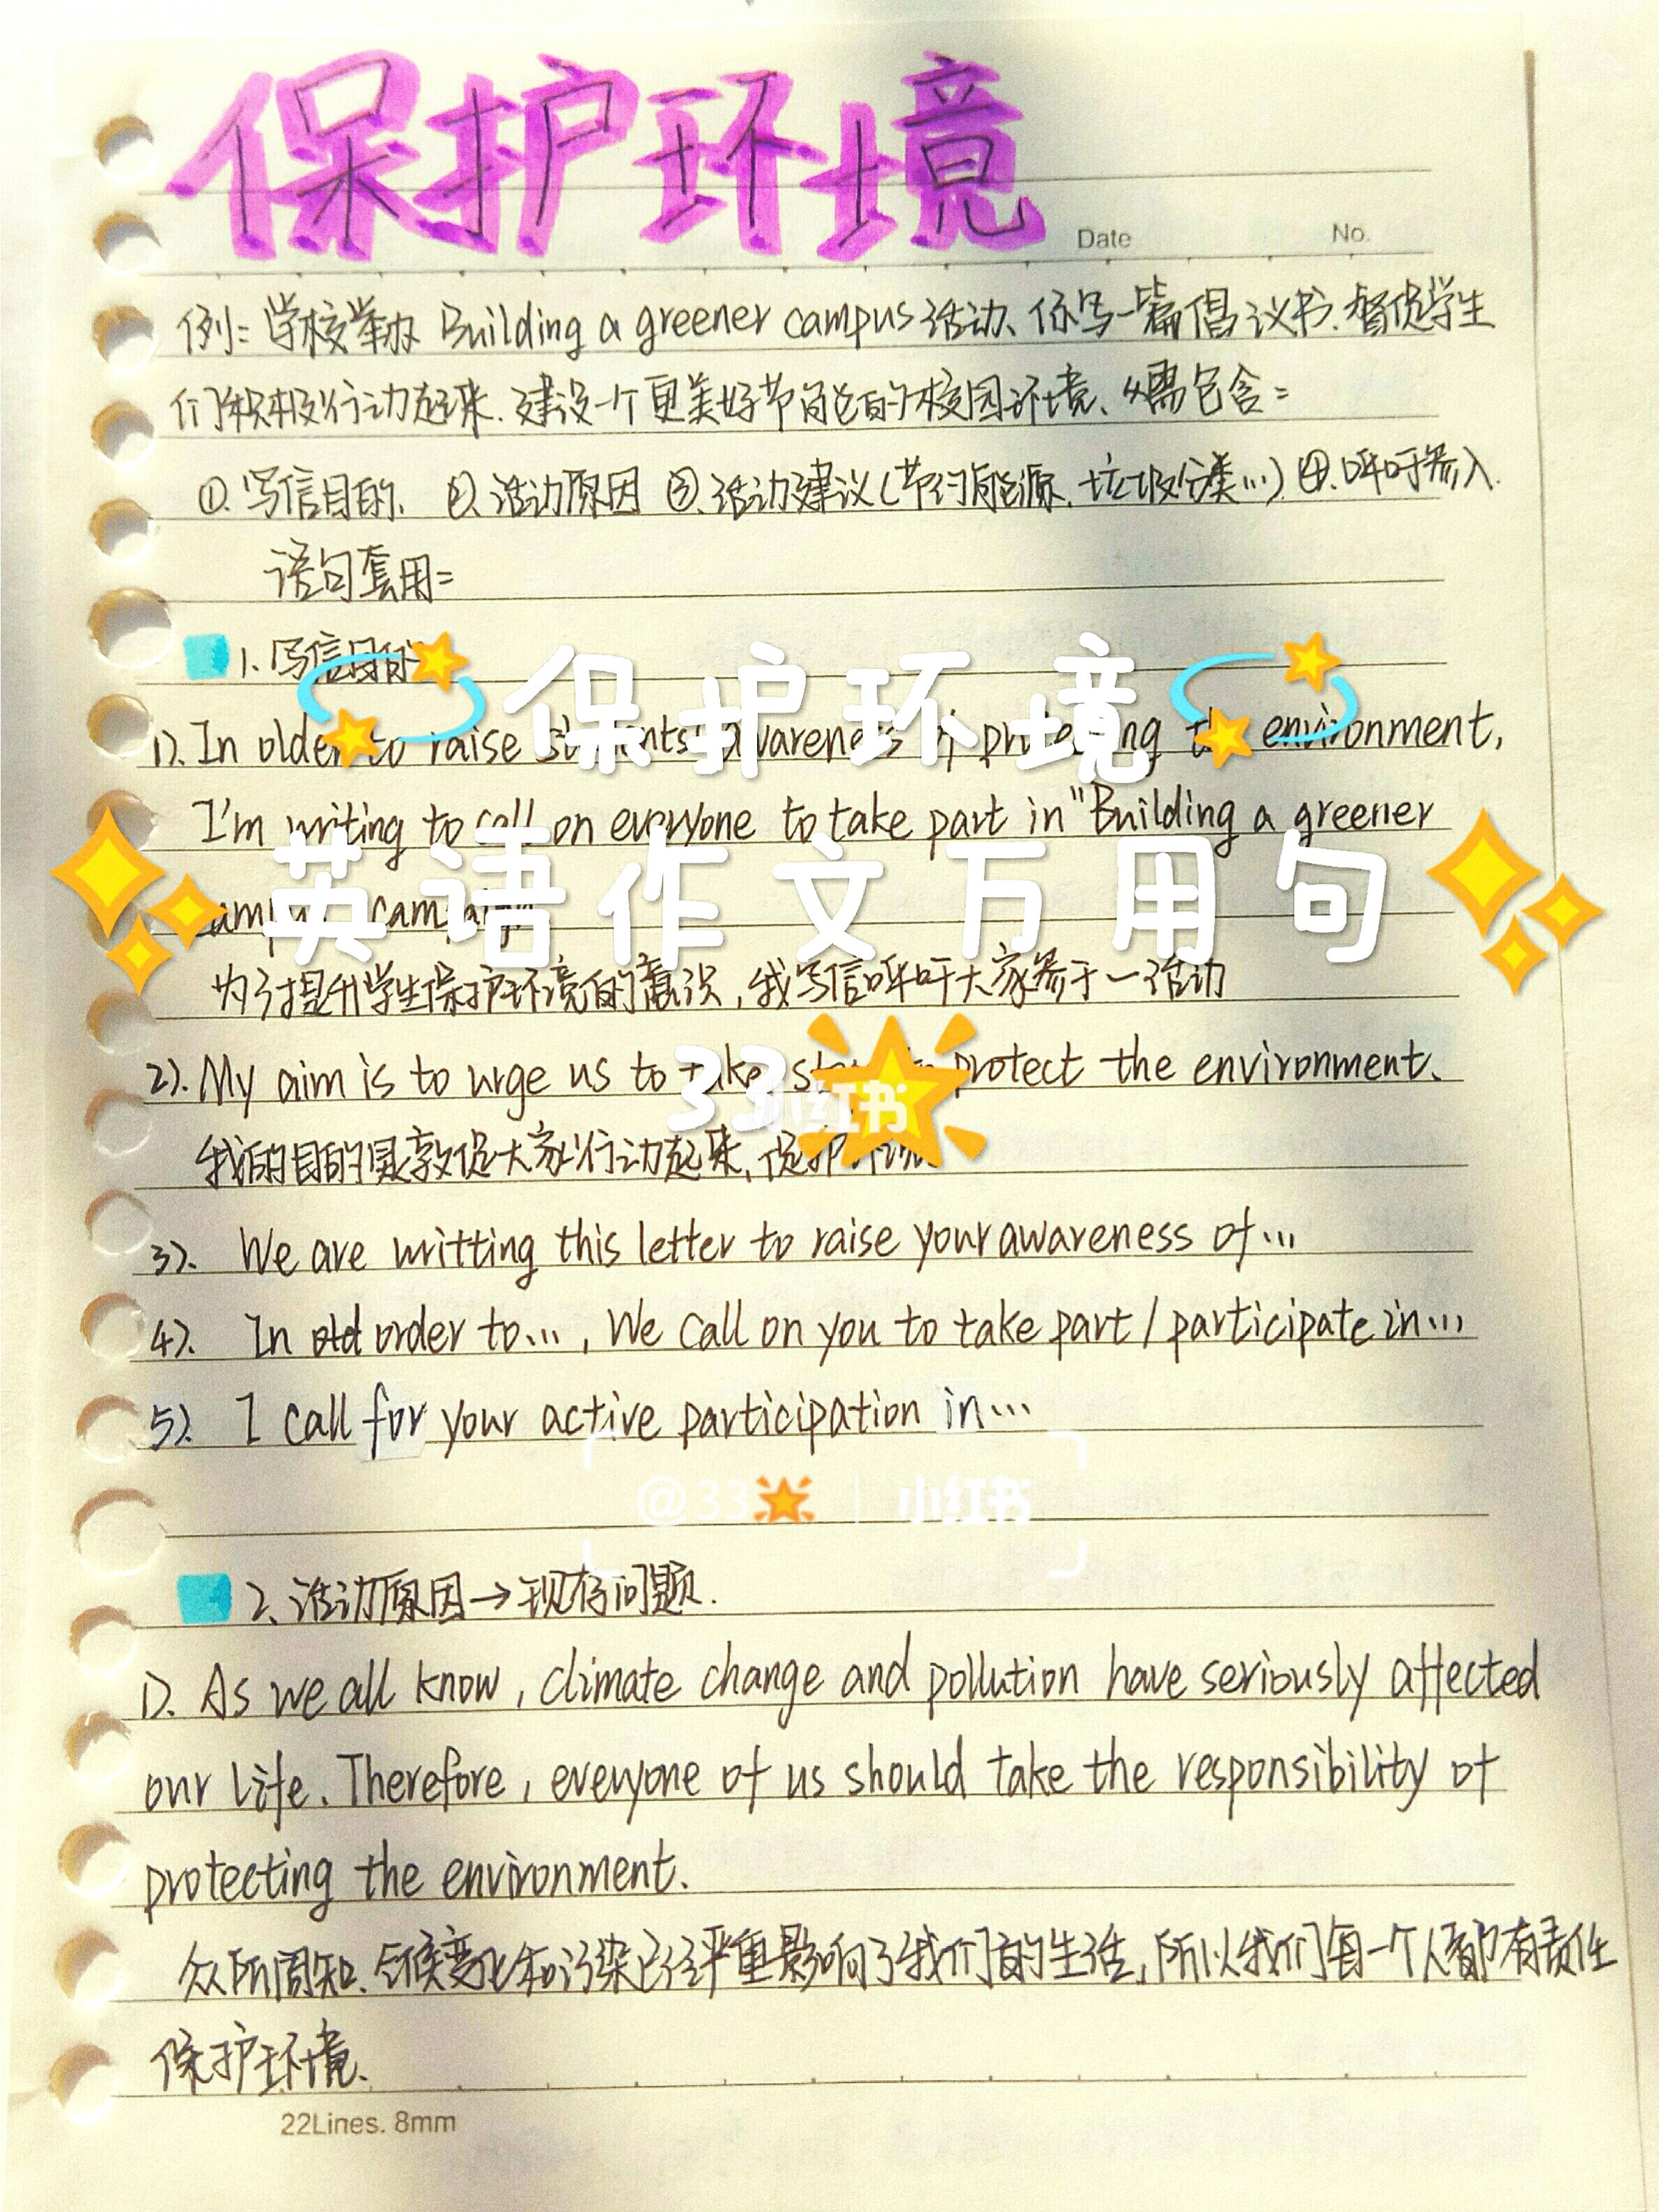 保护环境
Date No.
例: 学校举办 Building a greener campus 活动、你写一篇倡议书.督促学生
们积极行动起来.建设一个更美好节能的校园环境、需包含:
①.写信目的. ②.活动原因 ③.活动建议(节约能源.垃圾分类…) ④.呼吁参入.
语句套用:
1.写信目的
保护环境
1). In older to raise students' awareness of protecting the environment,
I'm writing to call on everyone to take part in "Building a greener
campus" campaign
英语作文万用句
为了提升学生保护环境的意识,我写信呼吁大家参于一活动
2). My aim is to urge us to take steps to protect the environment.
33 小红书
我的目的是敦促大家行动起来,保护环境
3). We are writting this letter to raise your awareness of…
4). In old order to…, We call on you to take part / participate in…
5). I call for your active participation in…
@33 | 小红书
2.活动原因→现存问题.
1). As we all know, climate change and pollution have seriously affected
our life. Therefore, everyone of us should take the responsibility of
protecting the environment.
众所周知.气候变化和污染已经严重影响了我们的生活,所以我们每一个人都有责任
保护环境.
22Lines. 8mm